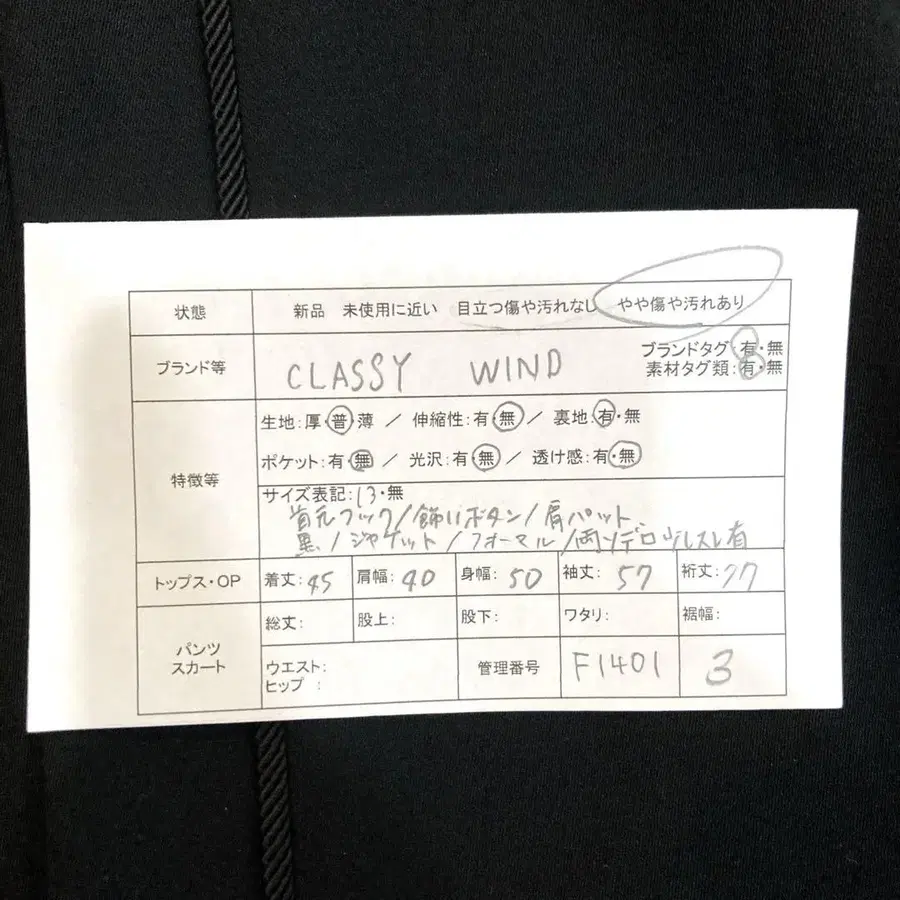 状態 新品 未使用に近い 目立つ傷や汚れなし やや傷や汚れあり
ブランド等 CLASSY WIND ブランドタグ:有・無
素材タグ類:有・無
特徴等 生地:厚・普・薄 / 伸縮性:有・無 / 裏地:有・無
ポケット:有・無 / 光沢:有・無 / 透け感:有・無
サイズ表記:13・無
首元フック/飾りボタン/肩パット
黒/ジャケット/フォーマル/両ソデロ少しスレ有
トップス・OP 着丈:45 肩幅:40 身幅:50 袖丈:57 裄丈:77
パンツ スカート 総丈: 股上: 股下: ワタリ: 裾幅:
ウエスト:
ヒップ : 管理番号 F1401 3